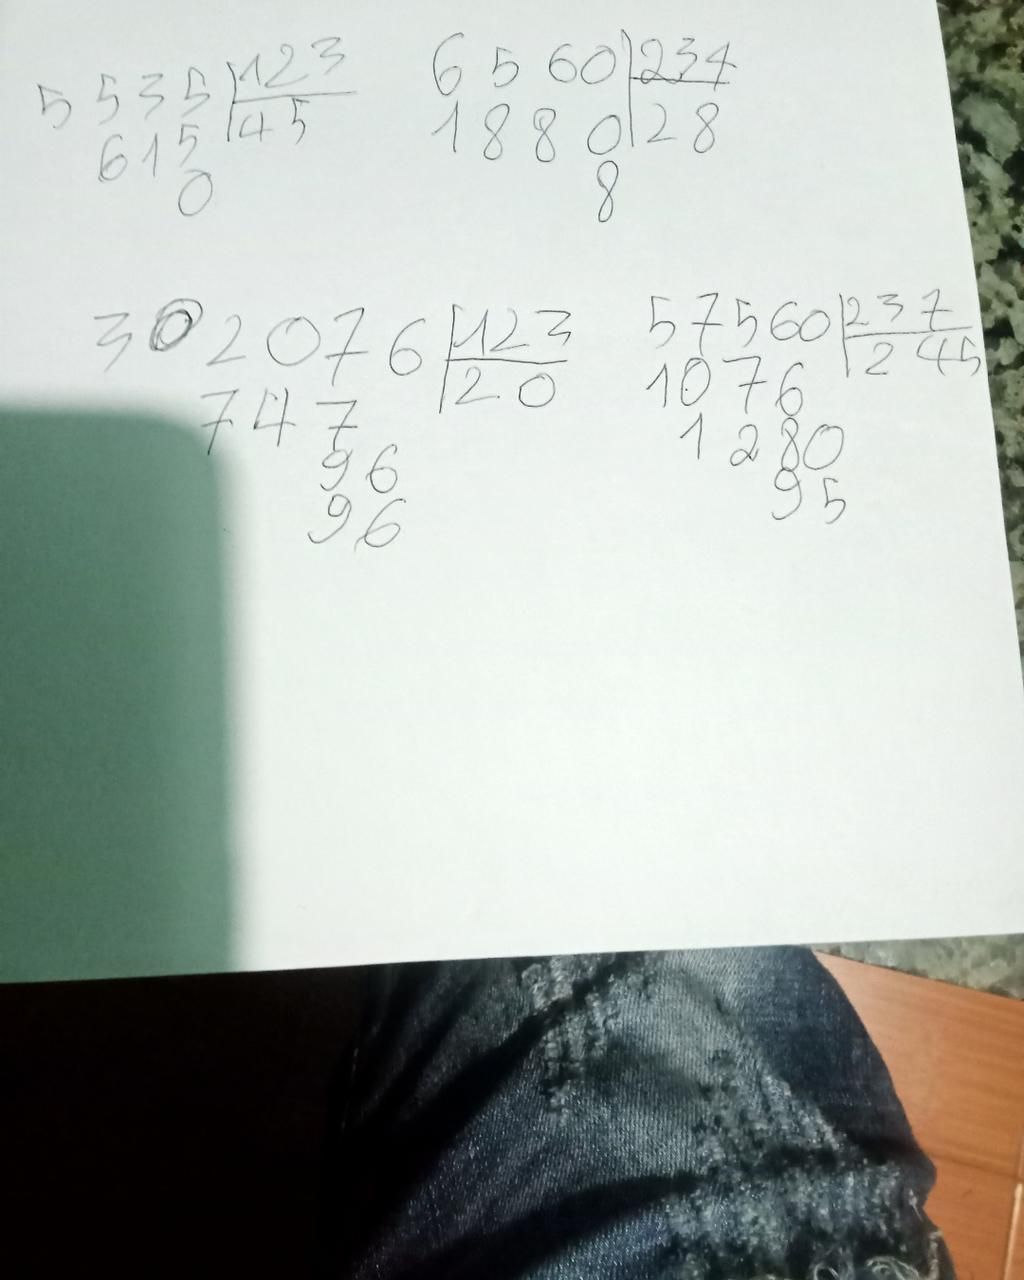 5535 123
615 45
0
6560 234
1880 28
8
302076 123
747 20
96
96
57560 237
1076 245
1280
95